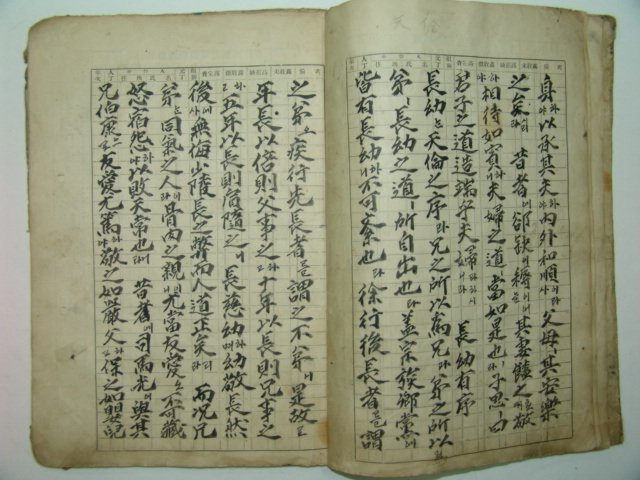 身하야以承其夫하야內外和順이라父母其安樂
之矣라 昔者에郤缺이耨이어其妻饁之호대敬
하야相待如賓하니夫婦之道當如是也라子思曰
君子之道造端乎夫婦라하시니라 長幼有序
長幼는天倫之序라兄之所以爲兄과弟之所以
弟에長幼之道所自出也라蓋宗族鄕黨에
皆有長幼하니不可紊也라徐行後長者를謂
之弟오疾行先長者를謂之不弟니是故로
年長以倍則父事之하고十年以長則兄事之
하고五年以長則肩隨之니 長慈幼하며幼敬長然
後에無侮少陵長之弊而人道正矣리라 而况兄
弟는同氣之人이라骨肉之親이니尤當友愛오不可藏
怒宿怨하야以敗天常也니라 昔者에司馬光이與其
兄伯康으로友愛尤篤하야敬之如嚴父하고保之如嬰兒